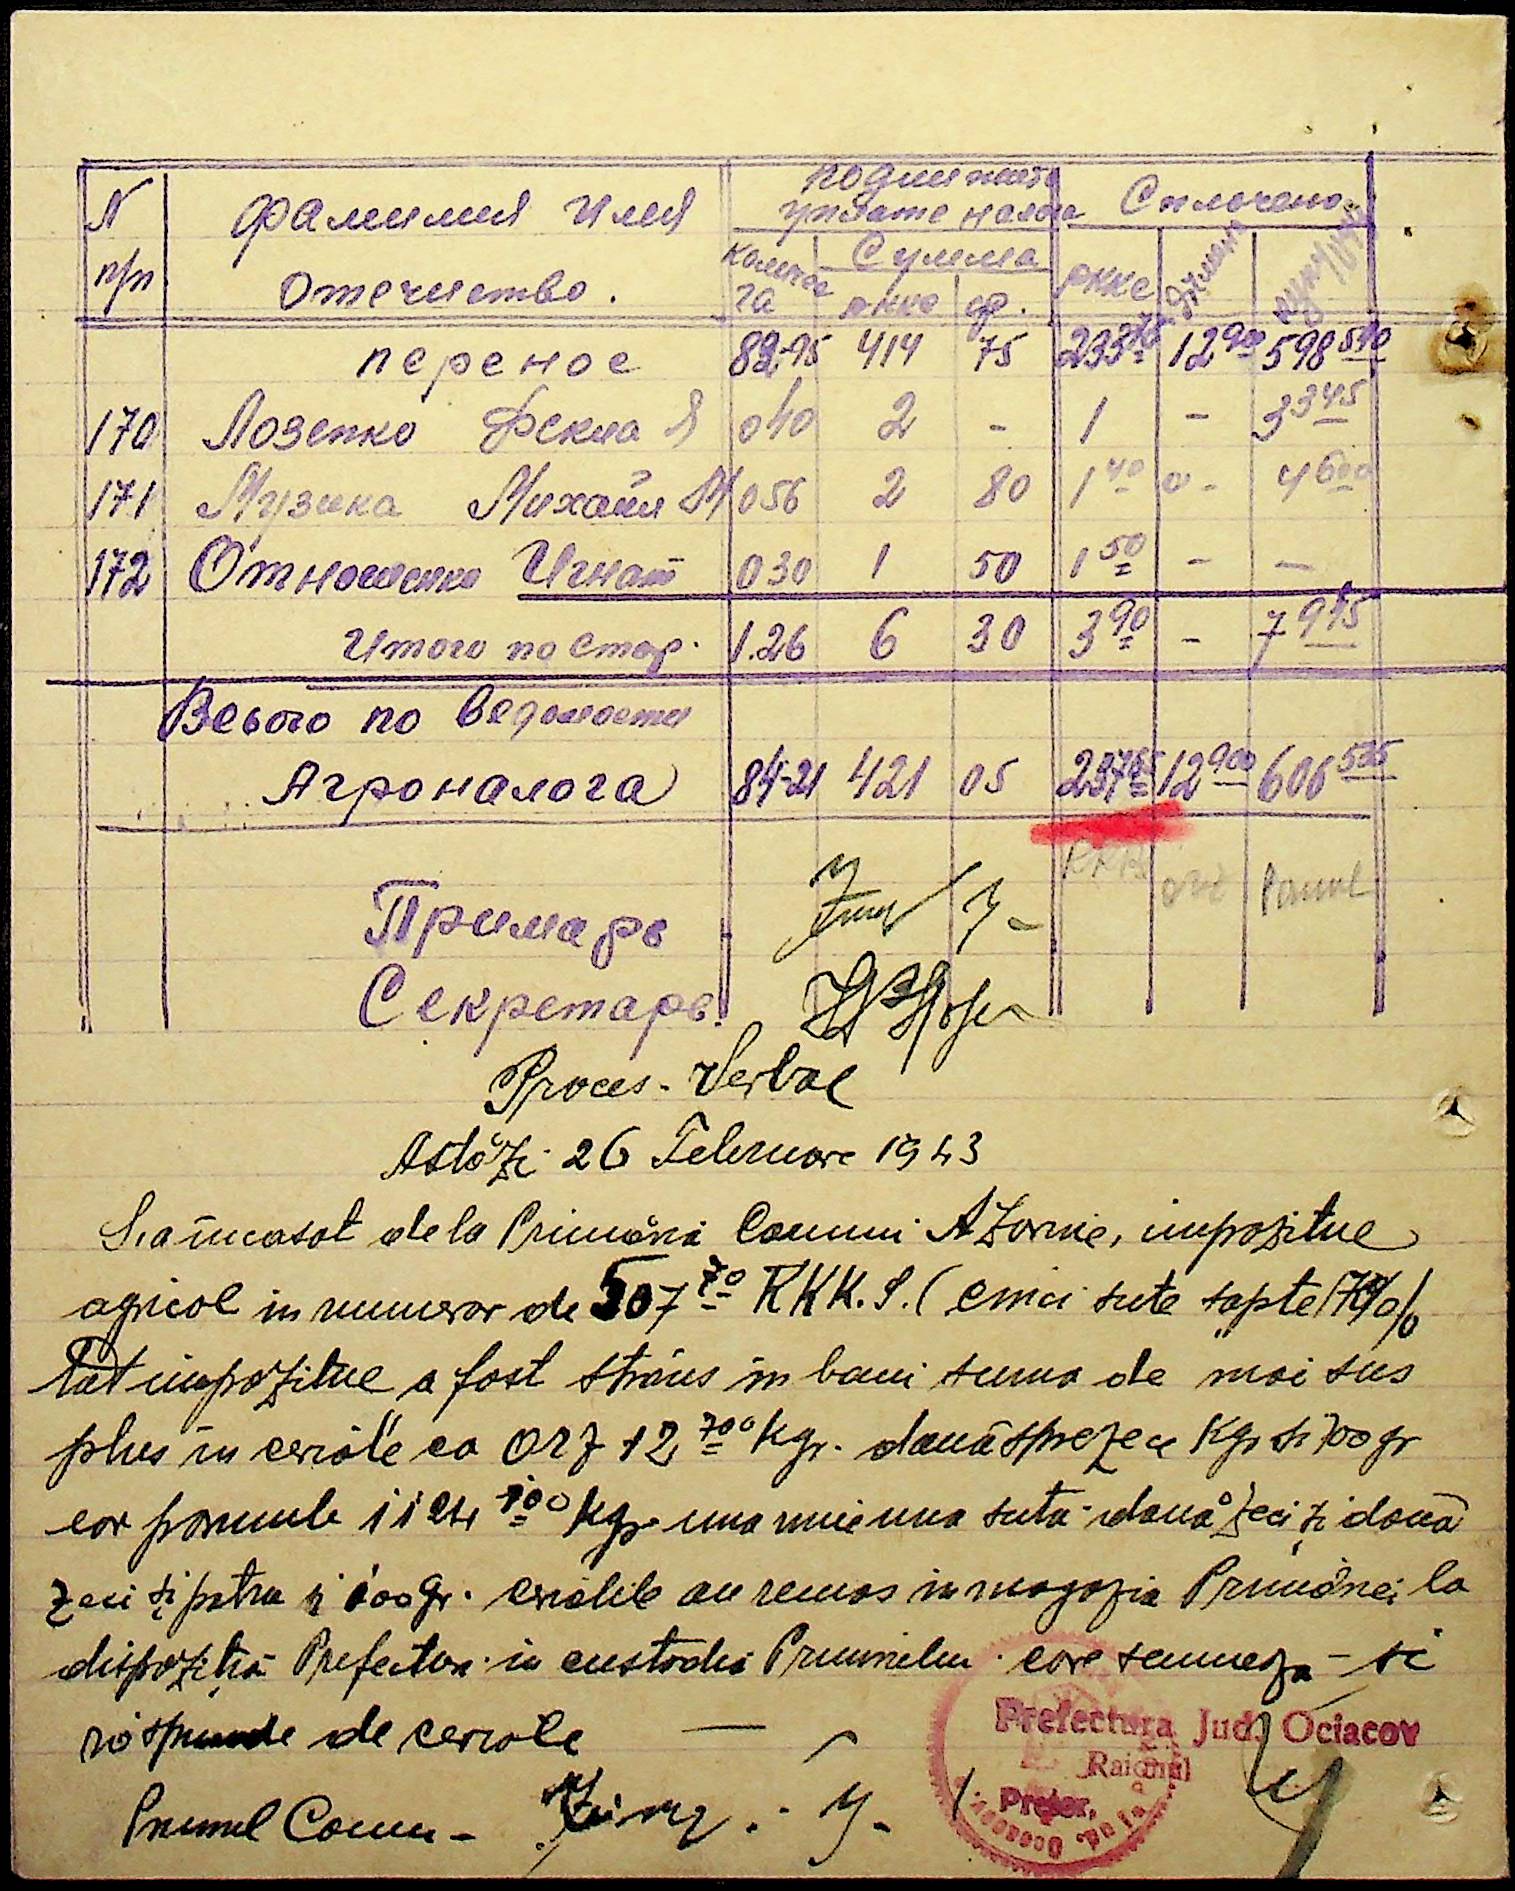 N п/п Фамилия Имя Отечество. Подлежит уплате налога Сплочено
Количес га Сумма ркке ф. ркке Ячмень
перенос 82-95 414 75 12 900 598 590
170 Лозенко Фекла Я 040 2 - 1 - 3 345
171 Музика Михаил М 056 2 80 1 40 - 4 600
172 Игнат 030 1 50 1 50 - -
Итого по стор. 1.26 6 30 3 90 - 7 945
Всього по ведомости
Агроналога 84-21 421 05 12 900 606 535
RKKS orz
Примарь
Секретарь.
Proces-Verbal
Astăzi 26 Februare 1943
S'a incasat de la Primăria Comuni impozitue
agricol in numerar de 507 70 RKK.S. (cinci sute sapte 70%
Tat impozitue a fost strâns in bani suma de mai sus
plus in ceriale ca orz 12 700 kgr. douăsprezece Kgr si 700 gr
iar 1124 100 kgr una mie una sută două zeci și două
zeci și patru și 100 gr. cerialile au remas in magazia Primăriei la
dispoziția Prefecturi in custodia Primarului care semneza - si
răspunde de ceriale —
Primarul Comu-
Prefectura Jud. Ociacov
Raionul
Pretor,